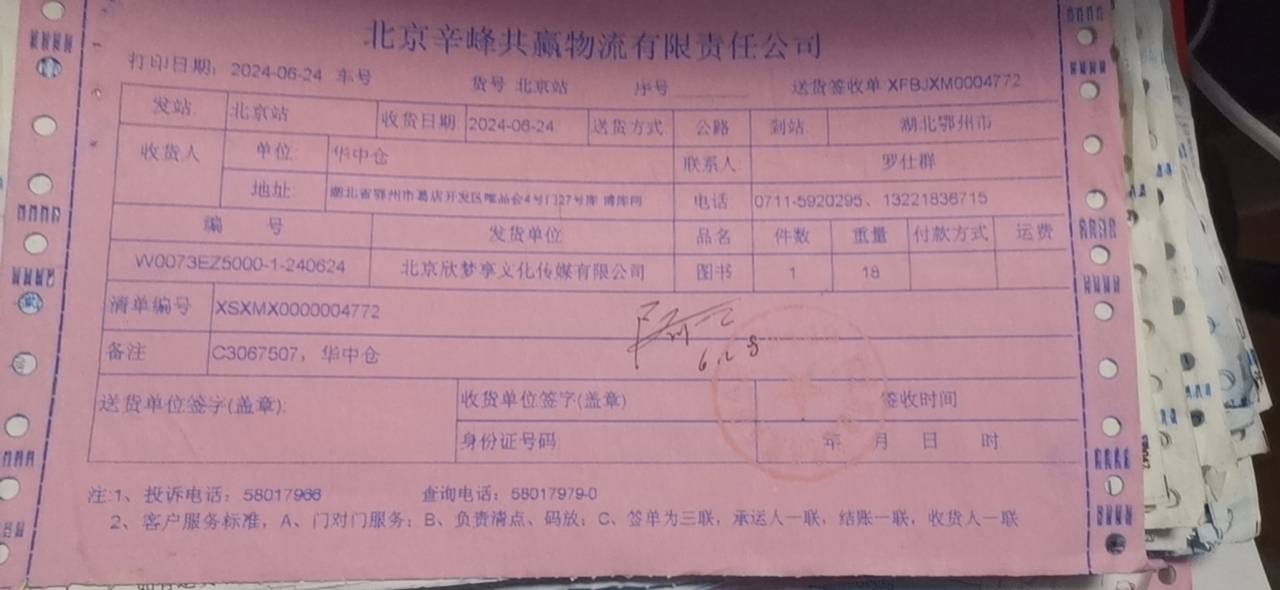 北京辛峰共赢物流有限责任公司
打印日期：2024-06-24 车号 货号 北京站 序号 送货签收单 XFBJXM0004772
发站 北京站 收货日期 2024-06-24 送货方式 公路 到站 湖北鄂州市
收货人 单位 华中仓 联系人 罗仕群
地址 湖北省鄂州市葛店开发区唯品会4号门27号库 博库网 电话 0711-5920295、13221836715
编号 发货单位 品名 件数 重量 付款方式 运费
W0073EZ5000-1-240624 北京欣梦享文化传媒有限公司 图书 1 18
清单编号 XSXMX0000004772
备注 C3067507，华中仓
6.28
送货单位签字(盖章): 收货单位签字(盖章) 签收时间
身份证号码 年 月 日 时
注:1、投诉电话：58017966 查询电话：58017979-0
2、客户服务标准，A、门对门服务；B、负责清点、码放；C、签单为三联，承运人一联，结账一联，收货人一联